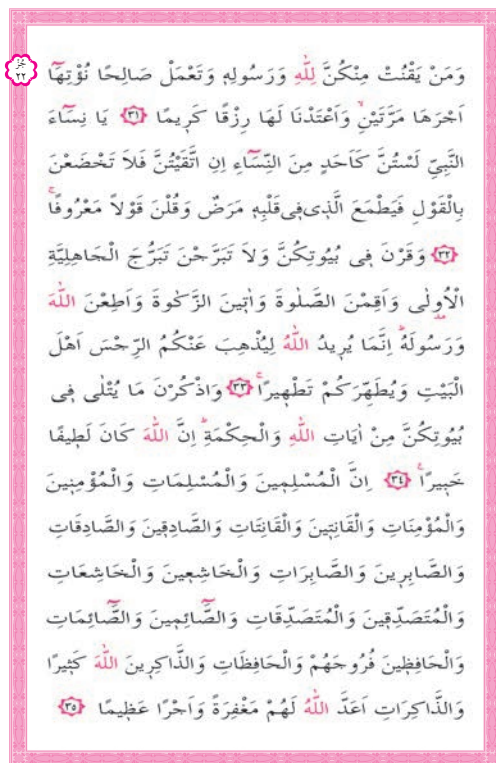 جُزْءُ ٢٢
وَمَنْ يَقْنُتْ مِنْكُنَّ لِلّٰهِ وَرَسُولِهٖ وَتَعْمَلْ صَالِحًا نُؤْتِهَٓا
اَجْرَهَا مَرَّتَيْنِۙ وَاَعْتَدْنَا لَهَا رِزْقًا كَرٖيمًا ﴿٣١﴾ يَا نِسَٓاءَ
النَّبِيِّ لَسْتُنَّ كَاَحَدٍ مِنَ النِّسَٓاءِ اِنِ اتَّقَيْتُنَّ فَلَا تَخْضَعْنَ
بِالْقَوْلِ فَيَطْمَعَ الَّذٖى فٖى قَلْبِهٖ مَرَضٌ وَقُلْنَ قَوْلًا مَعْرُوفًاۚ
﴿٣٢﴾ وَقَرْنَ فٖى بُيُوتِكُنَّ وَلَا تَبَرَّجْنَ تَبَرُّجَ الْجَاهِلِيَّةِ
الْاُولٰى وَاَقِمْنَ الصَّلٰوةَ وَاٰتٖينَ الزَّكٰوةَ وَاَطِعْنَ اللّٰهَ
وَرَسُولَهُؕ اِنَّمَا يُرٖيدُ اللّٰهُ لِيُذْهِبَ عَنْكُمُ الرِّجْسَ اَهْلَ
الْبَيْتِ وَيُطَهِّرَكُمْ تَطْهٖيرًاۚ ﴿٣٣﴾ وَاذْكُرْنَ مَا يُتْلٰى فٖى
بُيُوتِكُنَّ مِنْ اٰيَاتِ اللّٰهِ وَالْحِكْمَةِؕ اِنَّ اللّٰهَ كَانَ لَطٖيفًا
خَبٖيرًاۚ ﴿٣٤﴾ اِنَّ الْمُسْلِمٖينَ وَالْمُسْلِمَاتِ وَالْمُؤْمِنٖينَ
وَالْمُؤْمِنَاتِ وَالْقَانِتٖينَ وَالْقَانِتَاتِ وَالصَّادِقٖينَ وَالصَّادِقَاتِ
وَالصَّابِرٖينَ وَالصَّابِرَاتِ وَالْخَاشِعٖينَ وَالْخَاشِعَاتِ
وَالْمُتَصَدِّقٖينَ وَالْمُتَصَدِّقَاتِ وَالصَّٓائِمٖينَ وَالصَّٓائِمَاتِ
وَالْحَافِظٖينَ فُرُوجَهُمْ وَالْحَافِظَاتِ وَالذَّاكِرٖينَ اللّٰهَ كَثٖيرًا
وَالذَّاكِرَاتِ اَعَدَّ اللّٰهُ لَهُمْ مَغْفِرَةً وَاَجْرًا عَظٖيمًا ﴿٣٥﴾